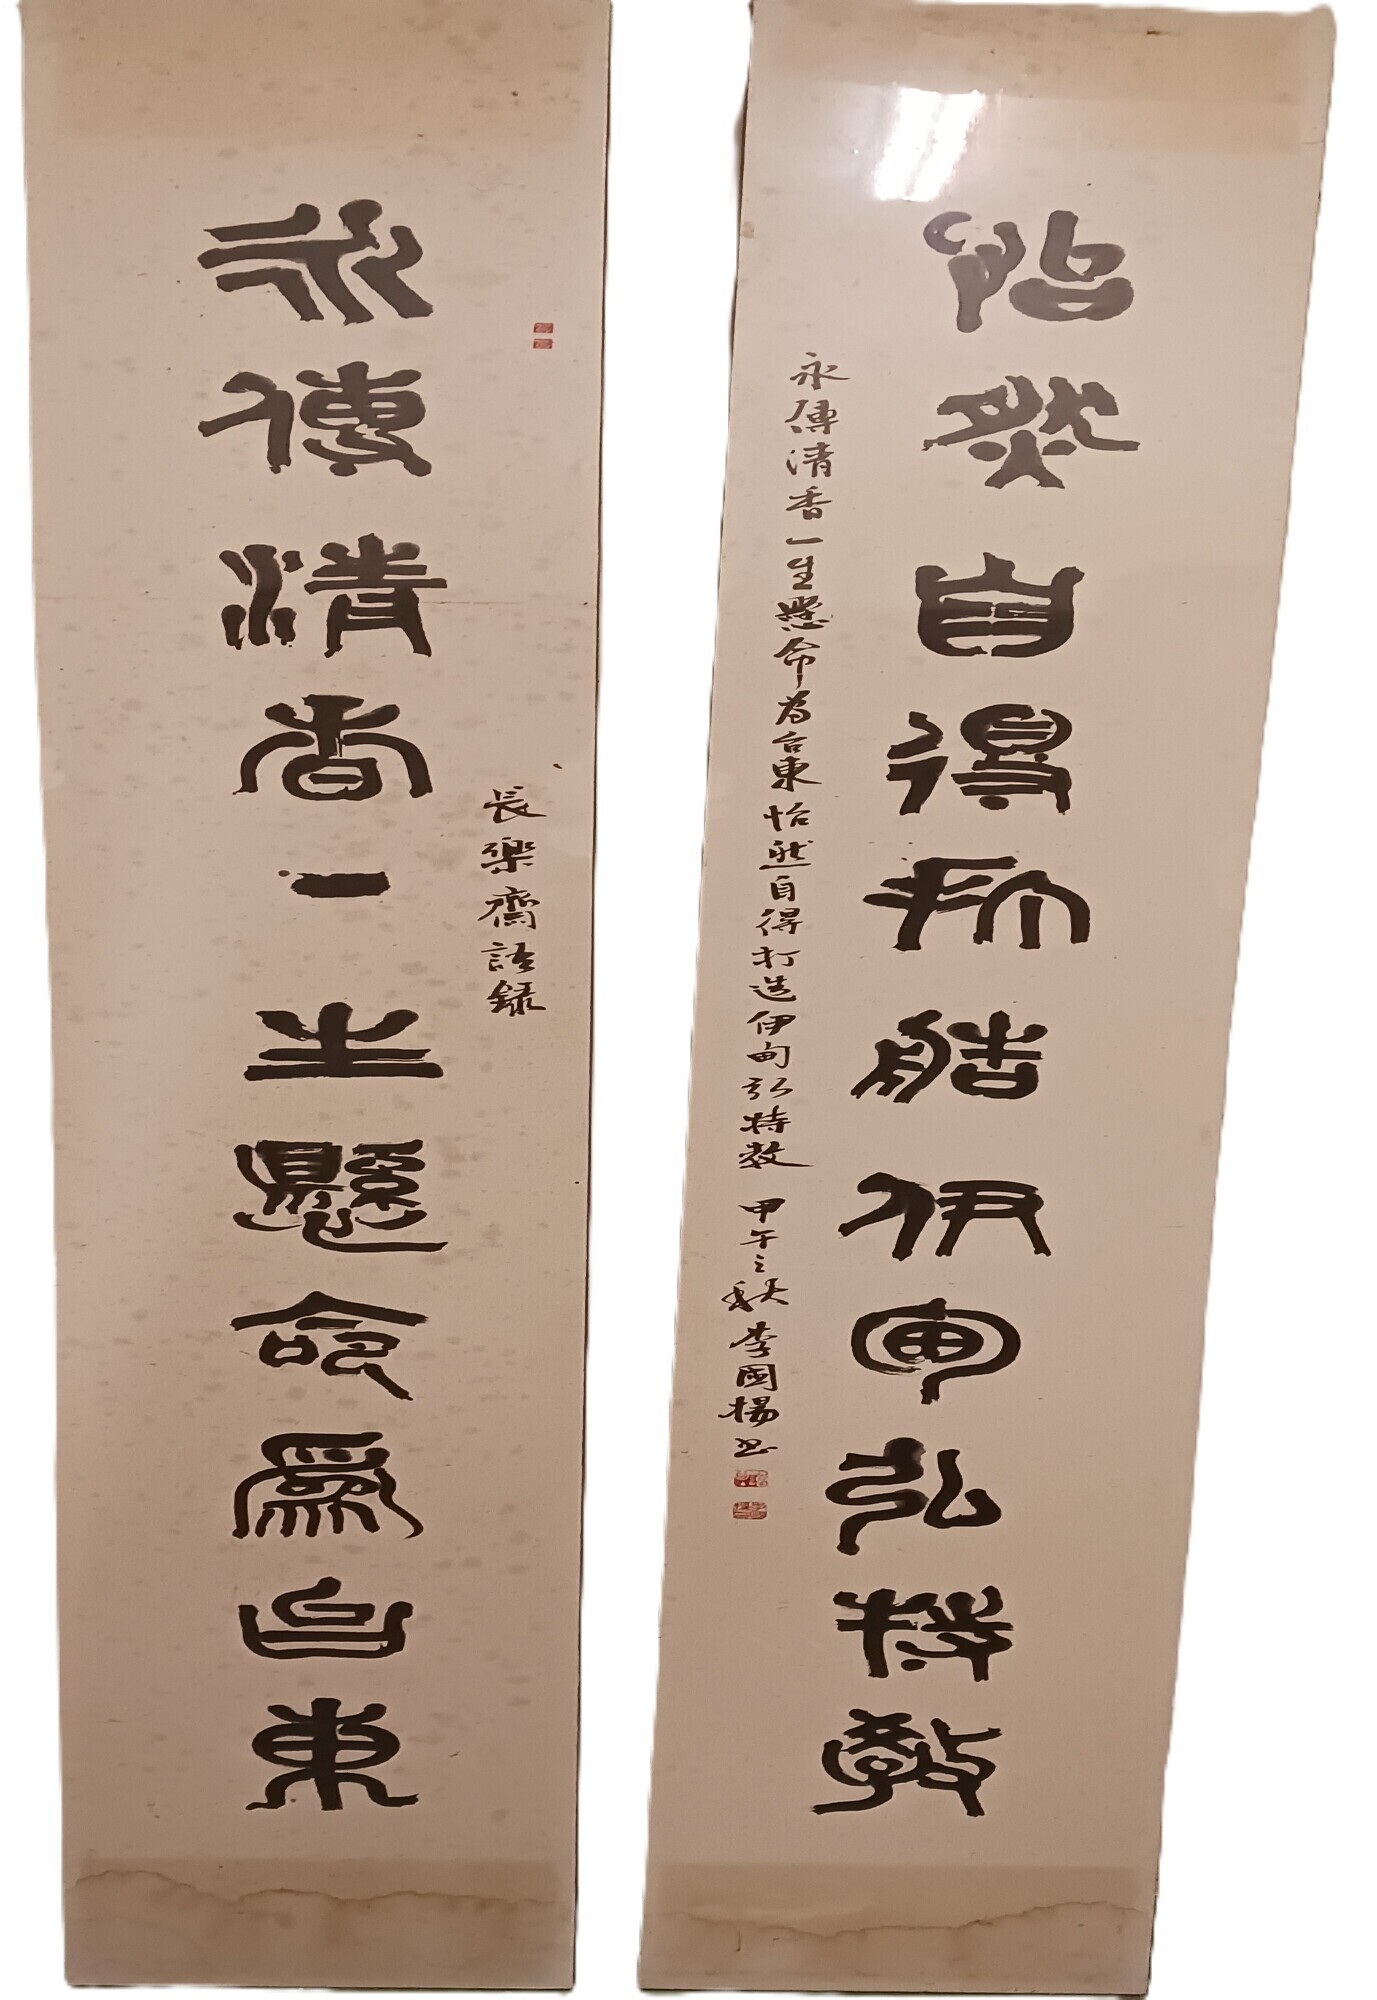 長樂齋語錄
永傳清香一生懸命爲台東
怡然自得打造伊甸弘特教
永傳清香一生懸命為台東怡然自得打造伊甸弘特教 甲午之秋 李國揚書